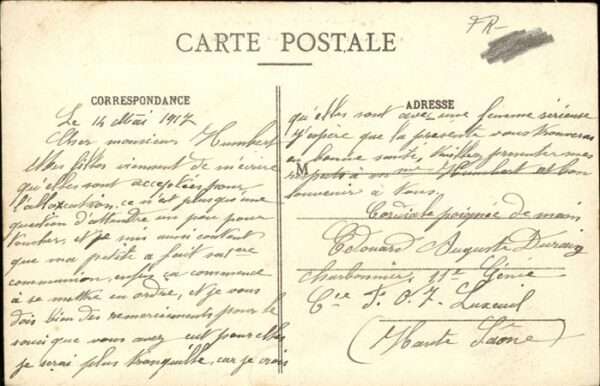 FR-
CARTE POSTALE
CORRESPONDANCE
Le 14 Mai 1917
Cher monsieur Humbert
Mes filles viennent de m'écrire
qu'elles sont acceptées pour
l'allocution, ce n'est plus qu'une
question d'attendre un peu pour
toucher, et je suis aussi content
que ma petite a fait sa 1ere
communion, enfin ça commence
à se mettre en ordre, et je vous
dois bien des remerciements pour le
souci que vous avez eut pour elles
je serai plus tranquille, car je crois
ADRESSE
qu'elles sont avec une femme sérieuse
J'espère que la présente vous trouveras
en bonne santé, veuillez présenter mes
M
respects à Mme Humbert et bon
souvenir à tous.
Cordiale poignée de main
Edouard Auguste
charbonnier, 11e Génie
Cie Luxeuil
(Haute Saône)